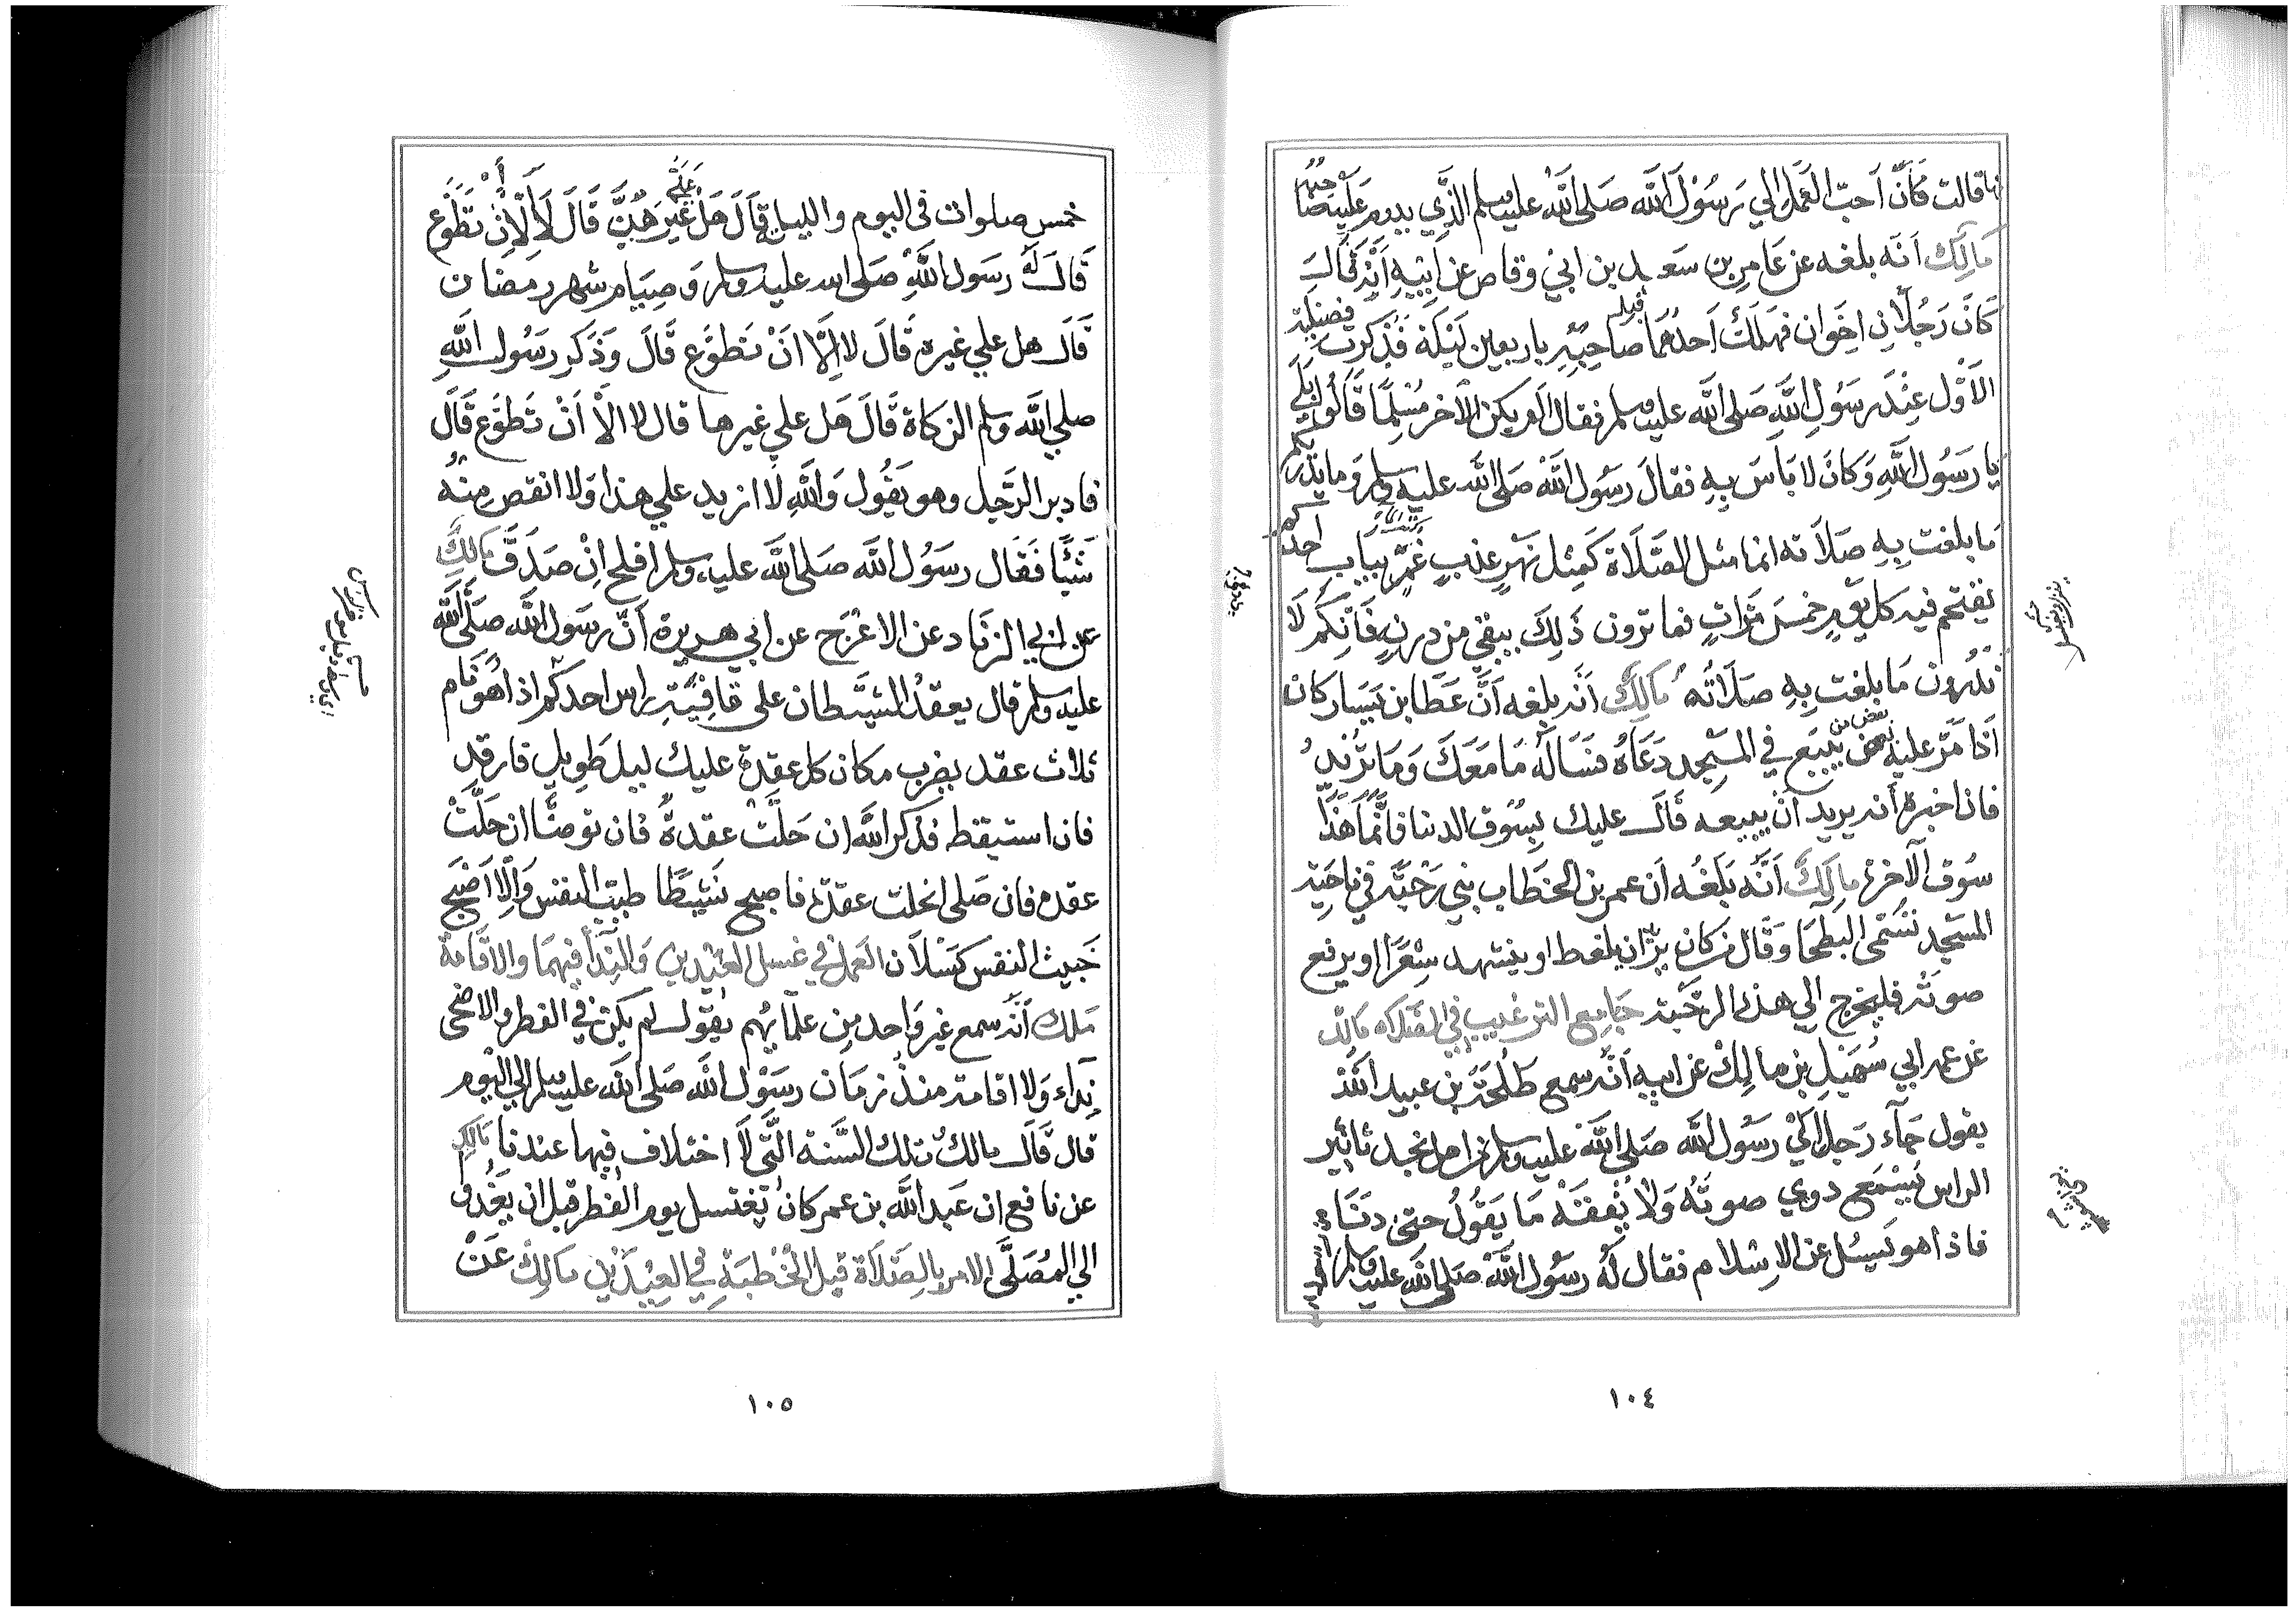 انها قالت كَانَ اَحبّ العَمَل الي رَسُوْل اللَّه صَلى اللَّه عليه وسلم الذَي يدوم عَلَيه صَاحبُه
مَالِك اَنَه بلغه عن عَامِر بن سَعد بن ابي وقاص عن اَبيهِ اَنَّه قَالَ
كَانَ رَجُلانِ اخَوَان فهَلَكَ اَحَدُهُمَا قَبل صَاحِبِهِ باربعين لَيْلَة فذكرت فضيلة
الاَوَّل عِنْدَ رَسُولِ اللَّهِ صَلى اللَّه عليه وسلم فقال الم يكن الآخر مُسْلِمًا قَالُوا بَلَى
يا رَسُول اللَّهِ وَكَانَ لا بَاسَ بِهِ فقالَ رَسُول اللَّه صَلى اللَّه عليه وسلم وَما يدريكم
مَا بلغت بِهِ صَلاَته انما مثل الصَّلَاة كَمِثل نَهْرٍ عذبٍ غمرٍ بِبَاب احدكم
يقتحم فيه كل يومٍ خمسَ مَرّاتٍ فما ترون ذَلِكَ يبقي من درنهِ فَانكم لَا
تدرون مَا بلغت بِهِ صَلَاتُه مَالِك اَنه بلغه اَنَّ عَطَا بن يَسَار كان
اذَا مَرّ عليه بعض من يبيع في المَسْجِد دَعَاهُ فسَالَه مَا مَعَكَ وَمَا تريدُ
فان اخبره اَنه يريد اَنْ يبيعه قَالَ عليك بسُوق الدنيا فانَّمَا هَذَا
سُوق الآخرة مالِك اَنَّه بَلَغُه اَن عمر بن الخطاب بني رَحَبَة في نَاحَية
المسَجد تسَمّى البطحَا وَقَال من كان يريد ان يلغط او ينشد شِعْرًا او يرفع
صوته فليخرج الي هذه الرحَبة جَامِع الترغيب في الصَّلاه مَالك
عَن عمه ابي سُهَيْل بن مالِكْ عَن ابيه اَنَّه سمع طَلْحَة بن عبيد اللَّه
يقول جَآء رَجل اِلَي رسُول اللَّه صَلى اللَّه عليه وسلم من اهل نجد ثائر
الراس يُسْمَع دوي صوتُه وَلا يُفقَه مَا يَقُولُ حتى دَنَا
فاذا هو يَسئل عن الاِسْلام فقال لَه رسُول اللَّه صَلى اللَّه عليه وسلم
١٠٤
خمس صلوات في اليوم والليلة قالَ هَلْ عَلَيَّ غَيْرهُنَّ قَالَ لَا اِلّا اَنْ تَطَّوَّع
قَالَ لَه رسَول اللَّهِ صَلى الله عليه وسلم وَصِيَام شهر رمضان
قَالَ هل علي غيره قَالَ لا اِلَّا انْ تَطوَّع قَالَ وَذَكَر رسَُول اللَّهِ
صلي اللَّه وسلم الزكاة قَالَ هَل علي غيرها قال لا الاَّ اَنْ تَطَوَّع قَالَ
فادبر الرّجل وهو يَقُول وَاللَّهِ لَا ازيد علي هذا وَلا انقص مِنهُ
شَيْئًا فَقَال رسَوُل اللَّه صَلى اللَّه عليه وسلم افلح انْ صَدَقَ مَالِك
عَن ابي الزنَاد عن الاعْرَج عن ابي هريرة اَنّ رسَول اللَّه صَلَّى اللَّه
عليه وسلم قال يعقدُ الشيَّطان على قافِيَة راس احدكُم اذا هُو نَام
ثلاث عقد يضرب مكان كل عقدة عليك ليل طَوِيل فارقدِ
فان استيقظ فذكر اللَّه انحَلَّت عقدةٌ فان توضّأ انحَلّتْ
عقده فان صَلى انحلت عقدة فاصبح نَشِيطًا طيب النفس وَاِلّا اَصْبَح
خَبيث النفس كَسْلاَن العَمل في غسل العَيْدين وَالنِّدَآ فيهمَا والاقَامَة
مَلك اَنَّه سمع غير وَاحد مِن علمايُهم يقول لم يكن في الفطر والاضحى
نِدَاء وَلا اقامة منذُ زمَان رسَوْل اللَّه صَلى اللَّه عليه وسلم الي اليَوم
قال قَالَ مالكُ تلك السُّنة الَّتي لَا اختلاف فيها عندنا مَالِك
عن نافع ان عَبد اللَّه بن عمر كانَ يَغتسل يوم الفطر قبل ان يَغْدوا
الي المُصَلَّى الامر بالصَلَاة قبل الخُطبَةِ في العِيْدَيْن مَالِكْ عَنْ
١٠٥